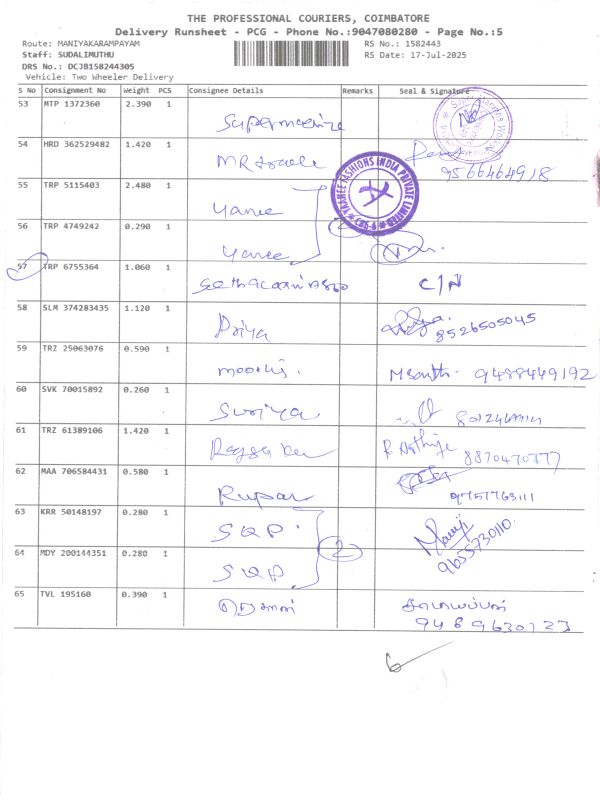 THE PROFESSIONAL COURIERS, COIMBATORE
Delivery Runsheet - PCG - Phone No.:9047080280 - Page No.:5
Route: MANIYAKARAMPAYAM
RS No.: 1582443
Staff: SUDALIMUTHU
RS Date: 17-Jul-2025
DRS No.: DCJB158244305
Vehicle: Two Wheeler Delivery
S No Consignment No Weight PCS Consignee Details Remarks Seal & Signature
53 MTP 1372360 2.390 1
54 HRD 362529482 1.420 1 9566464918
YANEE FASHIONS INDIA PRIVATE LIMITED
55 TRP 5115403 2.480 1 Yanee
56 TRP 4749242 0.290 1 Yanee
57 TRP 6755364 1.060 1 C/N
58 SLM 374283435 1.120 1 Priya 8526505045
59 TRZ 25063076 0.590 1 9488449192
60 SVK 70015892 0.260 1 Suriya
61 TRZ 61389106 1.420 1 8870470777
62 MAA 706584431 0.580 1 9757763111
63 KRR 50148197 0.280 1 SQP
2 9655730110
64 MDY 200144351 0.280 1 SQP
65 TVL 195160 0.390 1
9489630123